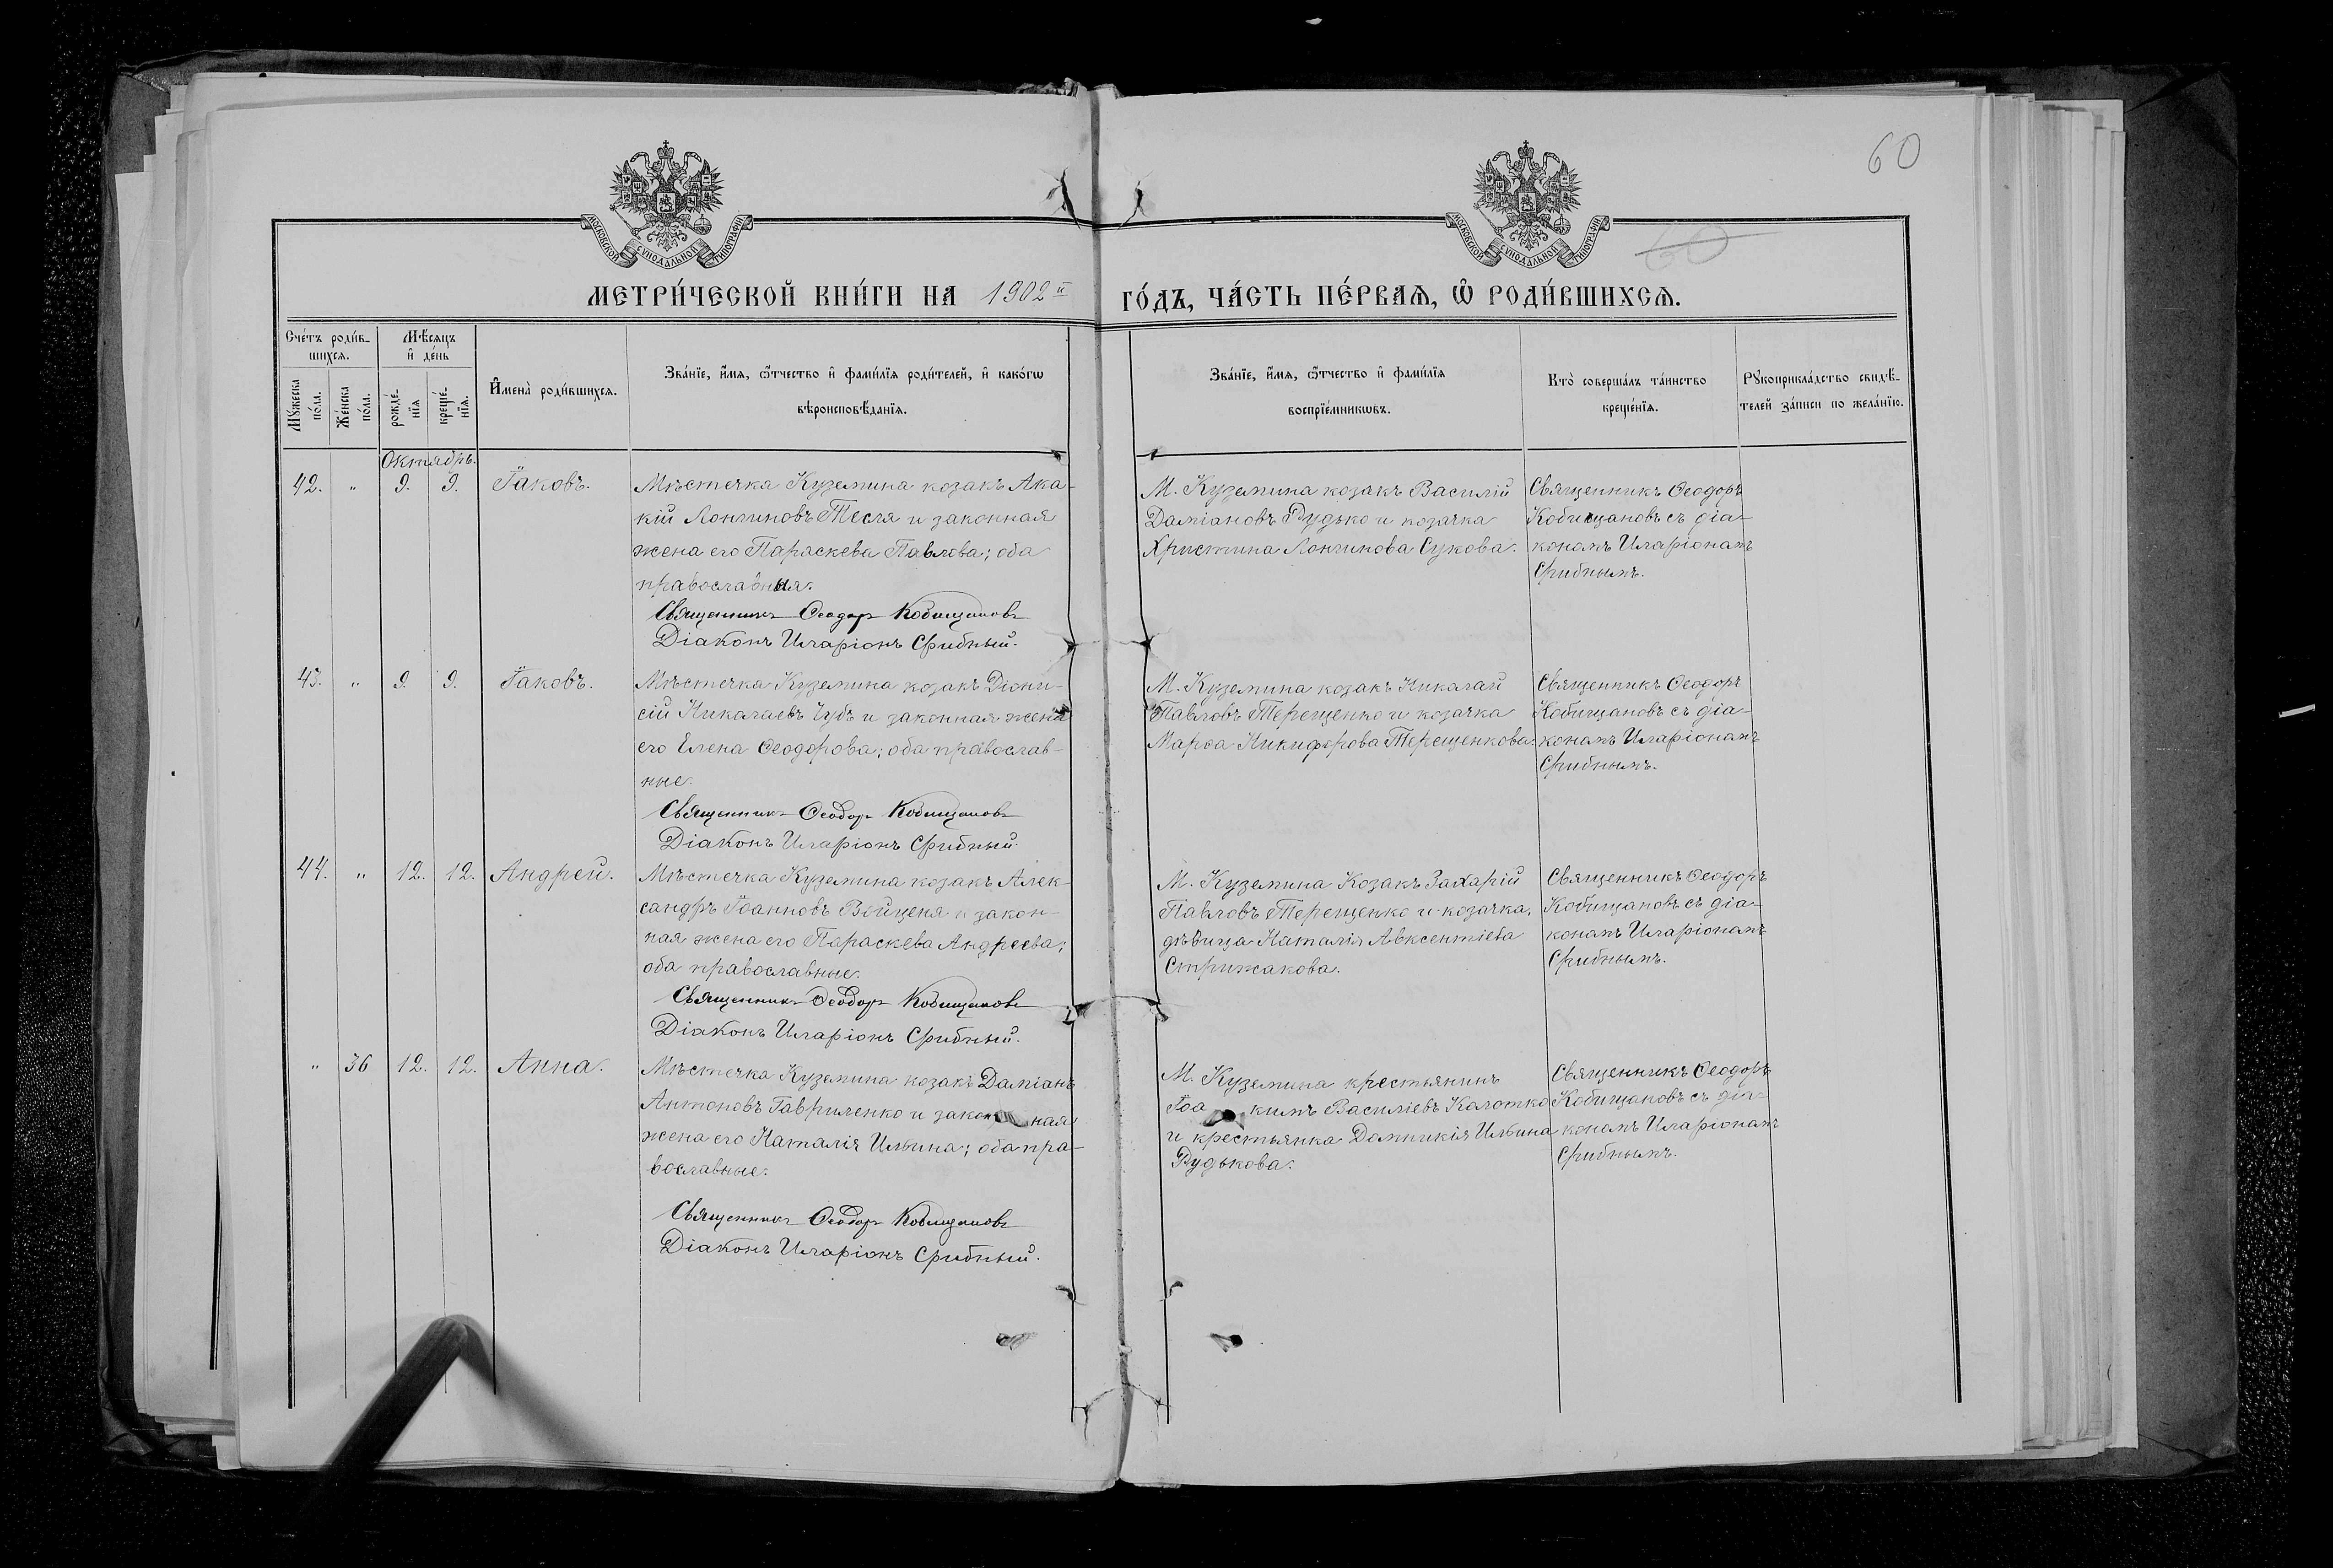 60
60
МОСКОВСКОЙ СУНОДАЛЬНОЙ ТИПОГРАФІИ
МОСКОВСКОЙ СУНОДАЛЬНОЙ ТИПОГРАФІИ
МЕТРИ́ЧЕСКОЙ КНИ́ГИ НА 1902й ГО́ДЪ, ЧА́СТЬ ПЕ́РВАѦ, Ѡ҆ РОДИ́ВШИХСѦ.
Сче́тъ роди́в-
шихсѧ.
Мꙋ́жеска
по́ла.
Же́нска
по́ла.
Мѣ́сѧцъ
и҆ де́нь
рожде́-
нїѧ
креще́-
нїѧ.
И҆мена̀ роди́вшихсѧ.
Зва́нїе, и҆́мѧ, ѻ҆́тчество и҆ фами́лїѧ роди́телей, и҆ како́гѡ
вѣроисповѣ́данїѧ.
Зва́нїе, и҆́мѧ, ѻ҆́тчество и҆ фами́лїѧ
воспрїе́мникѡвъ.
Кто̀ соверша́лъ та́инство
креще́нїѧ.
Рꙋкоприкла́дство свидѣ́-
телей за́писи по жела́нїю.
Октябрь.
42. " 9. 9. Іаковъ.
Мѣстечка Куземина козакъ Ака-
кій Лонгиновъ Тесля и законная
жена его Параскева Павлова; оба
православныя.
Священникъ Ѳеодоръ Кобищановъ
Діаконъ Иларіонъ Срибный.
М. Куземина козакъ Василій
Даміановъ Рудько и козачка
Христина Лонгинова Сукова.
Священникъ Ѳеодоръ
Кобищановъ съ діа-
кономъ Иларіономъ
Срибнымъ.
43. " 9. 9. Іаковъ.
Мѣстечка Куземина козакъ Діони-
сій Николаевъ Чубъ и законная жена
его Елена Ѳеодорова; оба православ-
ные.
Священникъ Ѳеодоръ Кобищановъ
Діаконъ Иларіонъ Срибный.
М. Куземина козакъ Николай
Павловъ Терещенко и козачка
Марѳа Никифорова Терещенкова.
Священникъ Ѳеодоръ
Кобищановъ съ діа-
кономъ Иларіономъ
Срибнымъ.
44. " 12. 12. Андрей.
Мѣстечка Куземина козакъ Алек-
сандръ Іоанновъ Войценя и закон-
ная жена его Параскева Андреева;
оба православные.
Священникъ Ѳеодоръ Кобищановъ
Діаконъ Иларіонъ Срибный.
М. Куземина Козакъ Захарій
Павловъ Терещенко и козачка,
дѣвица Наталія Авксентіева
Стрижакова.
Священникъ Ѳеодоръ
Кобищановъ съ діа-
кономъ Иларіономъ
Срибнымъ.
" 36 12. 12. Анна.
Мѣстечка Куземина козакъ Даміанъ
Антоновъ Гавриленко и законная
жена его Наталія Ильина; оба пра-
вославные.
Священникъ Ѳеодоръ Кобищановъ
Діаконъ Иларіонъ Срибный.
М. Куземина крестьянинъ
Іоакимъ Василіевъ Колотко
и крестьянка Домникія Ильина
Рудькова.
Священникъ Ѳеодоръ
Кобищановъ съ діа-
кономъ Иларіономъ
Срибнымъ.